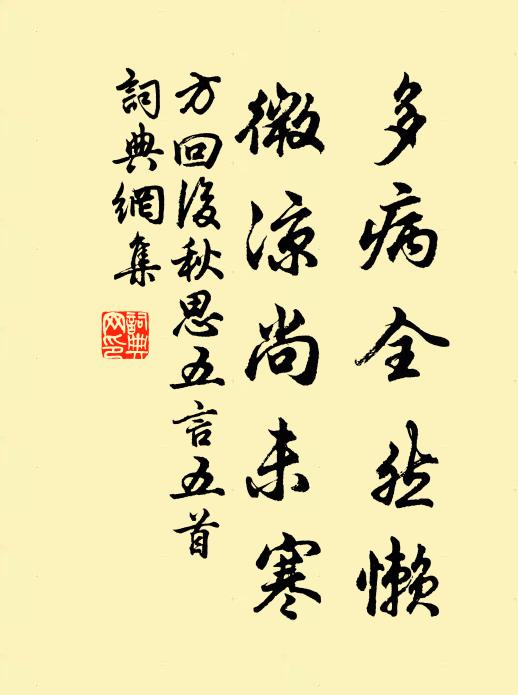 多病全然懶
微涼尚未寒
方回後秋思五言五首
詞典網集
詞典網印